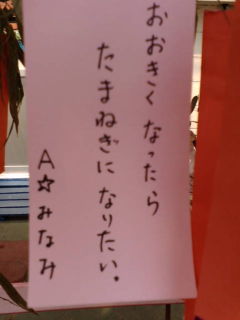 おおきくなったら
たまねぎになりたい。
A☆みなみ